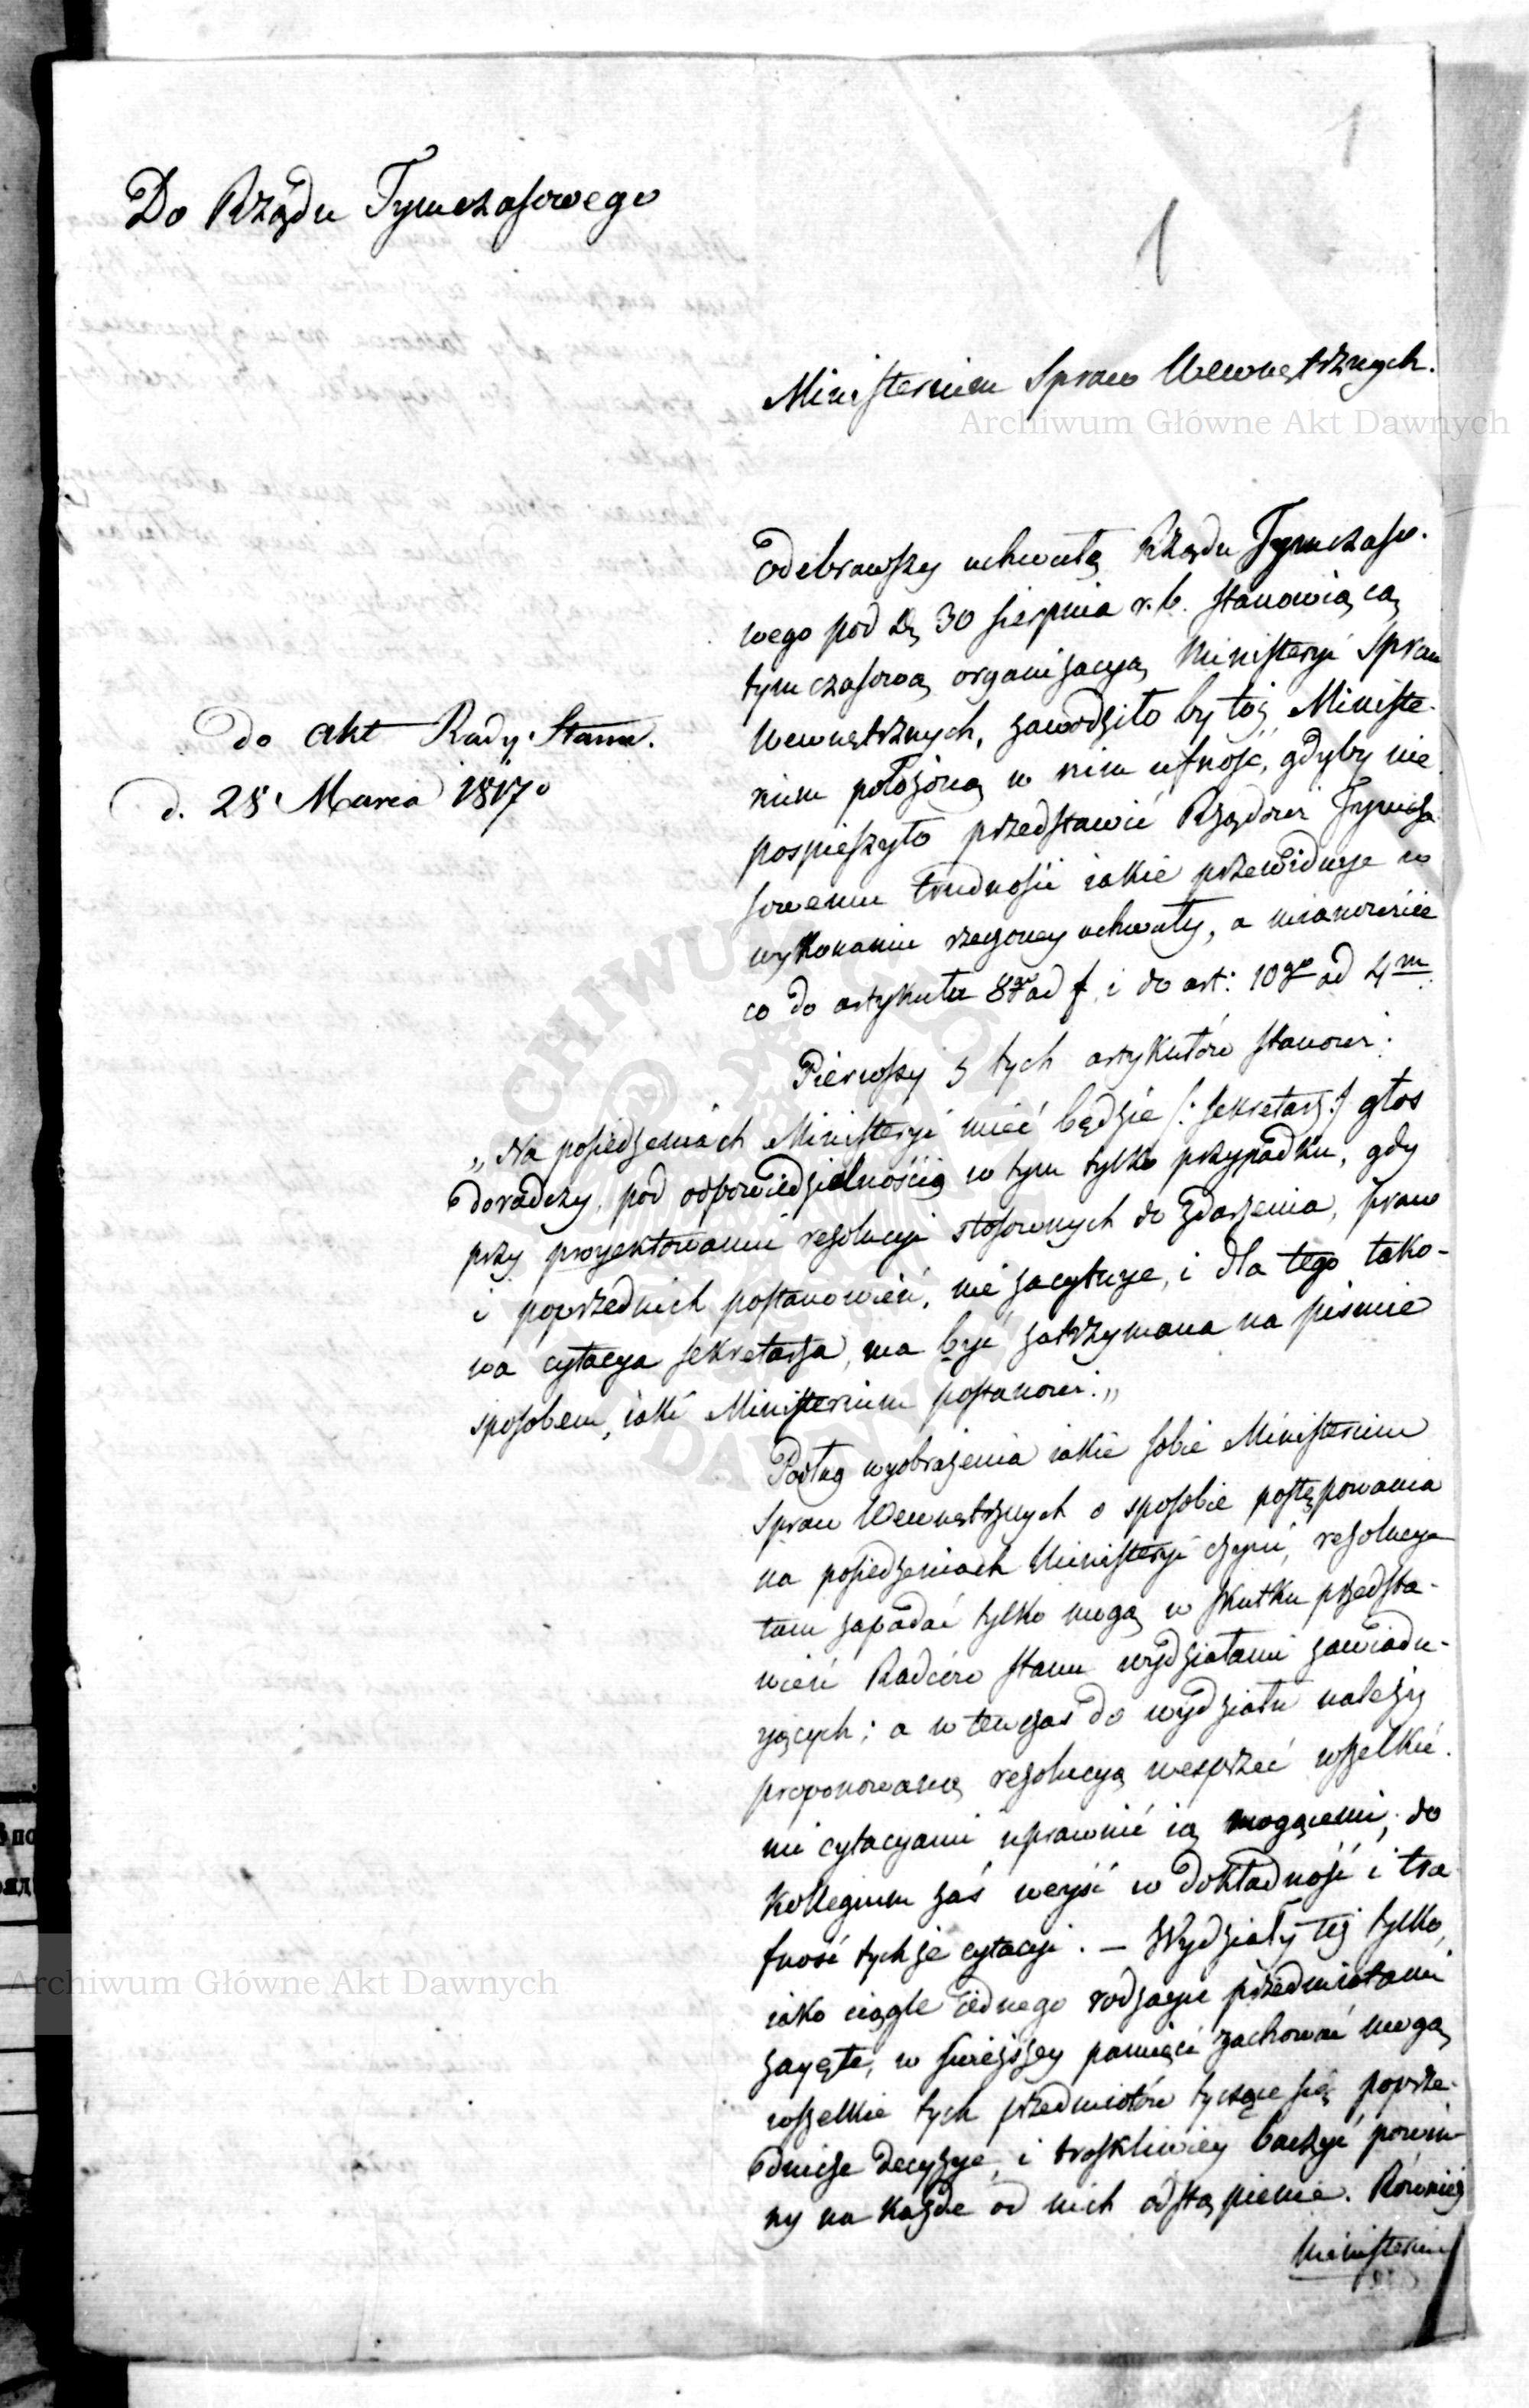 1
1
Do Rządu Tymczasowego
Ministerium Spraw Wewnętrznych.
Archiwum Główne Akt Dawnych
Odebrawszy uchwałę Rządu Tymczaso-
wego pod D. 30 Sierpnia r. b. stanowiącą
tymczasową organizacyą Ministeryi Spraw
Wewnętrznych, zawodziło by toż Ministe-
rium położoną w nim ufność, gdyby nie
pospieszyło przedstawić Rządowi Tymcza-
sowemu trudności iakie przewiduje w
wykonaniu rzeczoney uchwały, a mianowicie
co do artykułu 8go ad f. i do art: 10go ad 4m.
do Akt Rady Stanu.
d. 28 Marca 1817o
Pierwszy z tych artykułów stanowi:
„Na posiedzeniach Ministeryi mieć będzie /: Sekretarz :/ głos
doradczy, pod odpowiedzialnością w tym tylko przypadku, gdy
przy proyektowaniu rezolucyi stosownych do zdarzenia, praw
i poprzednich postanowień, nie zacytuje, i dla tego tako-
wa cytacya Sekretarza, ma być zatrzymana na piśmie
sposobem, iaki Ministerium postanowi.„
Podług wyobrażenia iakie sobie Ministerium
Spraw Wewnętrznych o sposobie postępowania
na posiedzeniach Ministeryi czyni, rezolucye
tam zapadać tylko mogą w skutku przedsta-
wień Radców Stanu wydziałami zawiadu-
jących; a w tenczas do wydziału należy
proponowaną rezolucyą wesprzeć wszelkie-
mi cytacyami uprawnić ią mogącemi; do
Kollegium zaś weyść w dokładność i tra-
fność tychże cytacyi. — Wydziały też tylko,
iako ciągle iednego rodzaju przedmiotami
zajęte, w świeższey pamięci zachować mogą
wszelkie tych przedmiotów tyczące się poprze-
dnicze decyzye, i troskliwiey baczyć powin-
ny na każde od nich odstąpienie. Również
Ministerium
Archiwum Główne Akt Dawnych